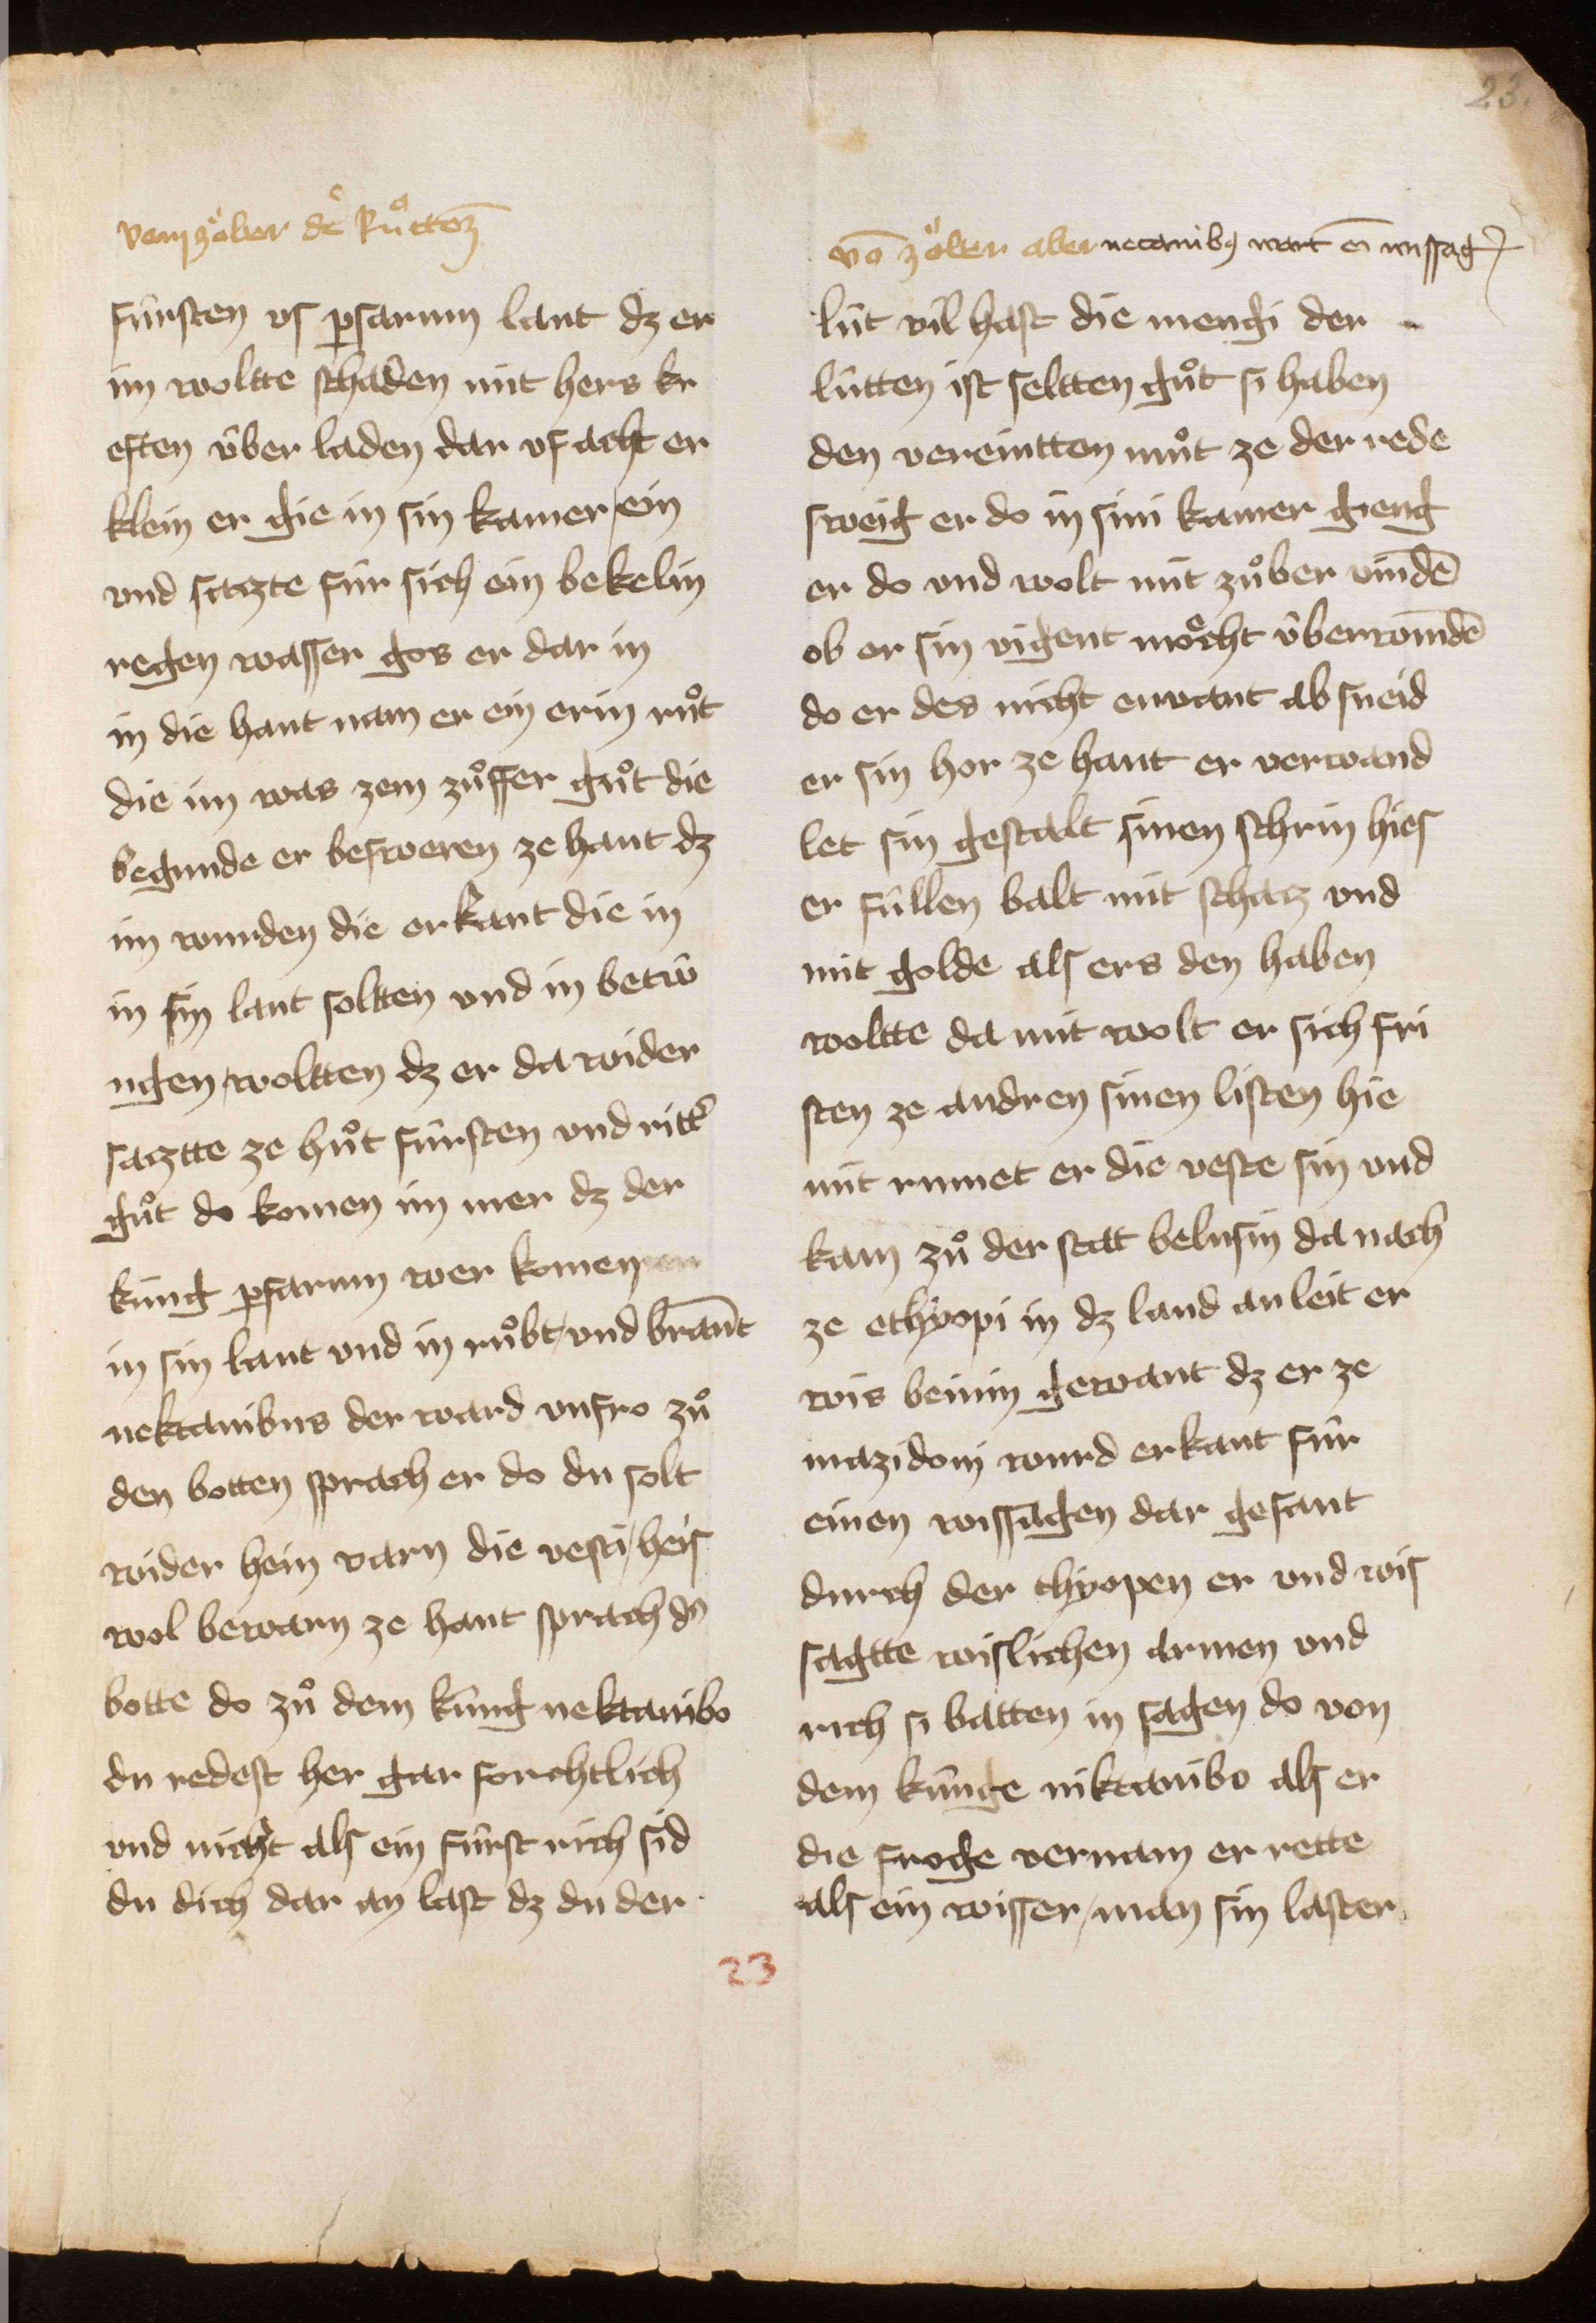 23.
vom zöber der Růtten
fúrsten vs persarum lant dz er
im woltte schaden mit hers kr
eften v́ber laden dar vf acht er
klein er gie in sin kamer ein
vnd saczte fúr sich ein bekelin
regen wasser gos er dar in
in die hant nam er ein erin růt
die im was zem zůffer gůt die
begunde er besweren ze hant dz
im wurden die erkant die in
in sin lant soltten vnd in betw
ngen woltten dz er da wider
sacztte ze hůt fúrsten vnd ritter
gůt do komen im mer dz der
kúng persarum wer komen
in sin lant vnd in růbt vnd brant
nektanibus der ward vnfro zů
den botten sprach er do du solt
wider hein varn die vesti heis
wol bewarn ze hant sprach dˀ
botte do zů dem kúng nektanibo
du redest her gar forchtlich
vnd nicht als ein fúrst rich sid
du dich dar an last dz du der
vō zöber aber necanibꝰ wart ein wissag
lút vil hast die mengi der
lútten ist seltten gůt si haben
den vereintten můt ze der rede
sweig er do in sini kamer gieng
er do vnd wolt mit zůber vindē
ob er sin vigent möcht v́berwindē
do er des nicht envant ab sneid
er sin hor ze hant er verwand
let sin gestalt sinen schrin hies
er fúllen balt mit schacz vnd
mit golde als ers den haben
woltte da mit wolt er sich fri
sten ze andren sinen listen hie
mit rumet er die veste sin vnd
kam zů der statt belusin da nach
ze ethyopi in dz land an leit er
wis beinin gewant dz er ze
mazidoni wurd erkant fúr
einen wissagen dar gesant
durch der thyopen er vnd wis
sagtte wislichen armen vnd
rich si batten in sagen do von
dem kúnge niktanibo als er
die froge vernam er rette
als ein wisser man sin laster
23